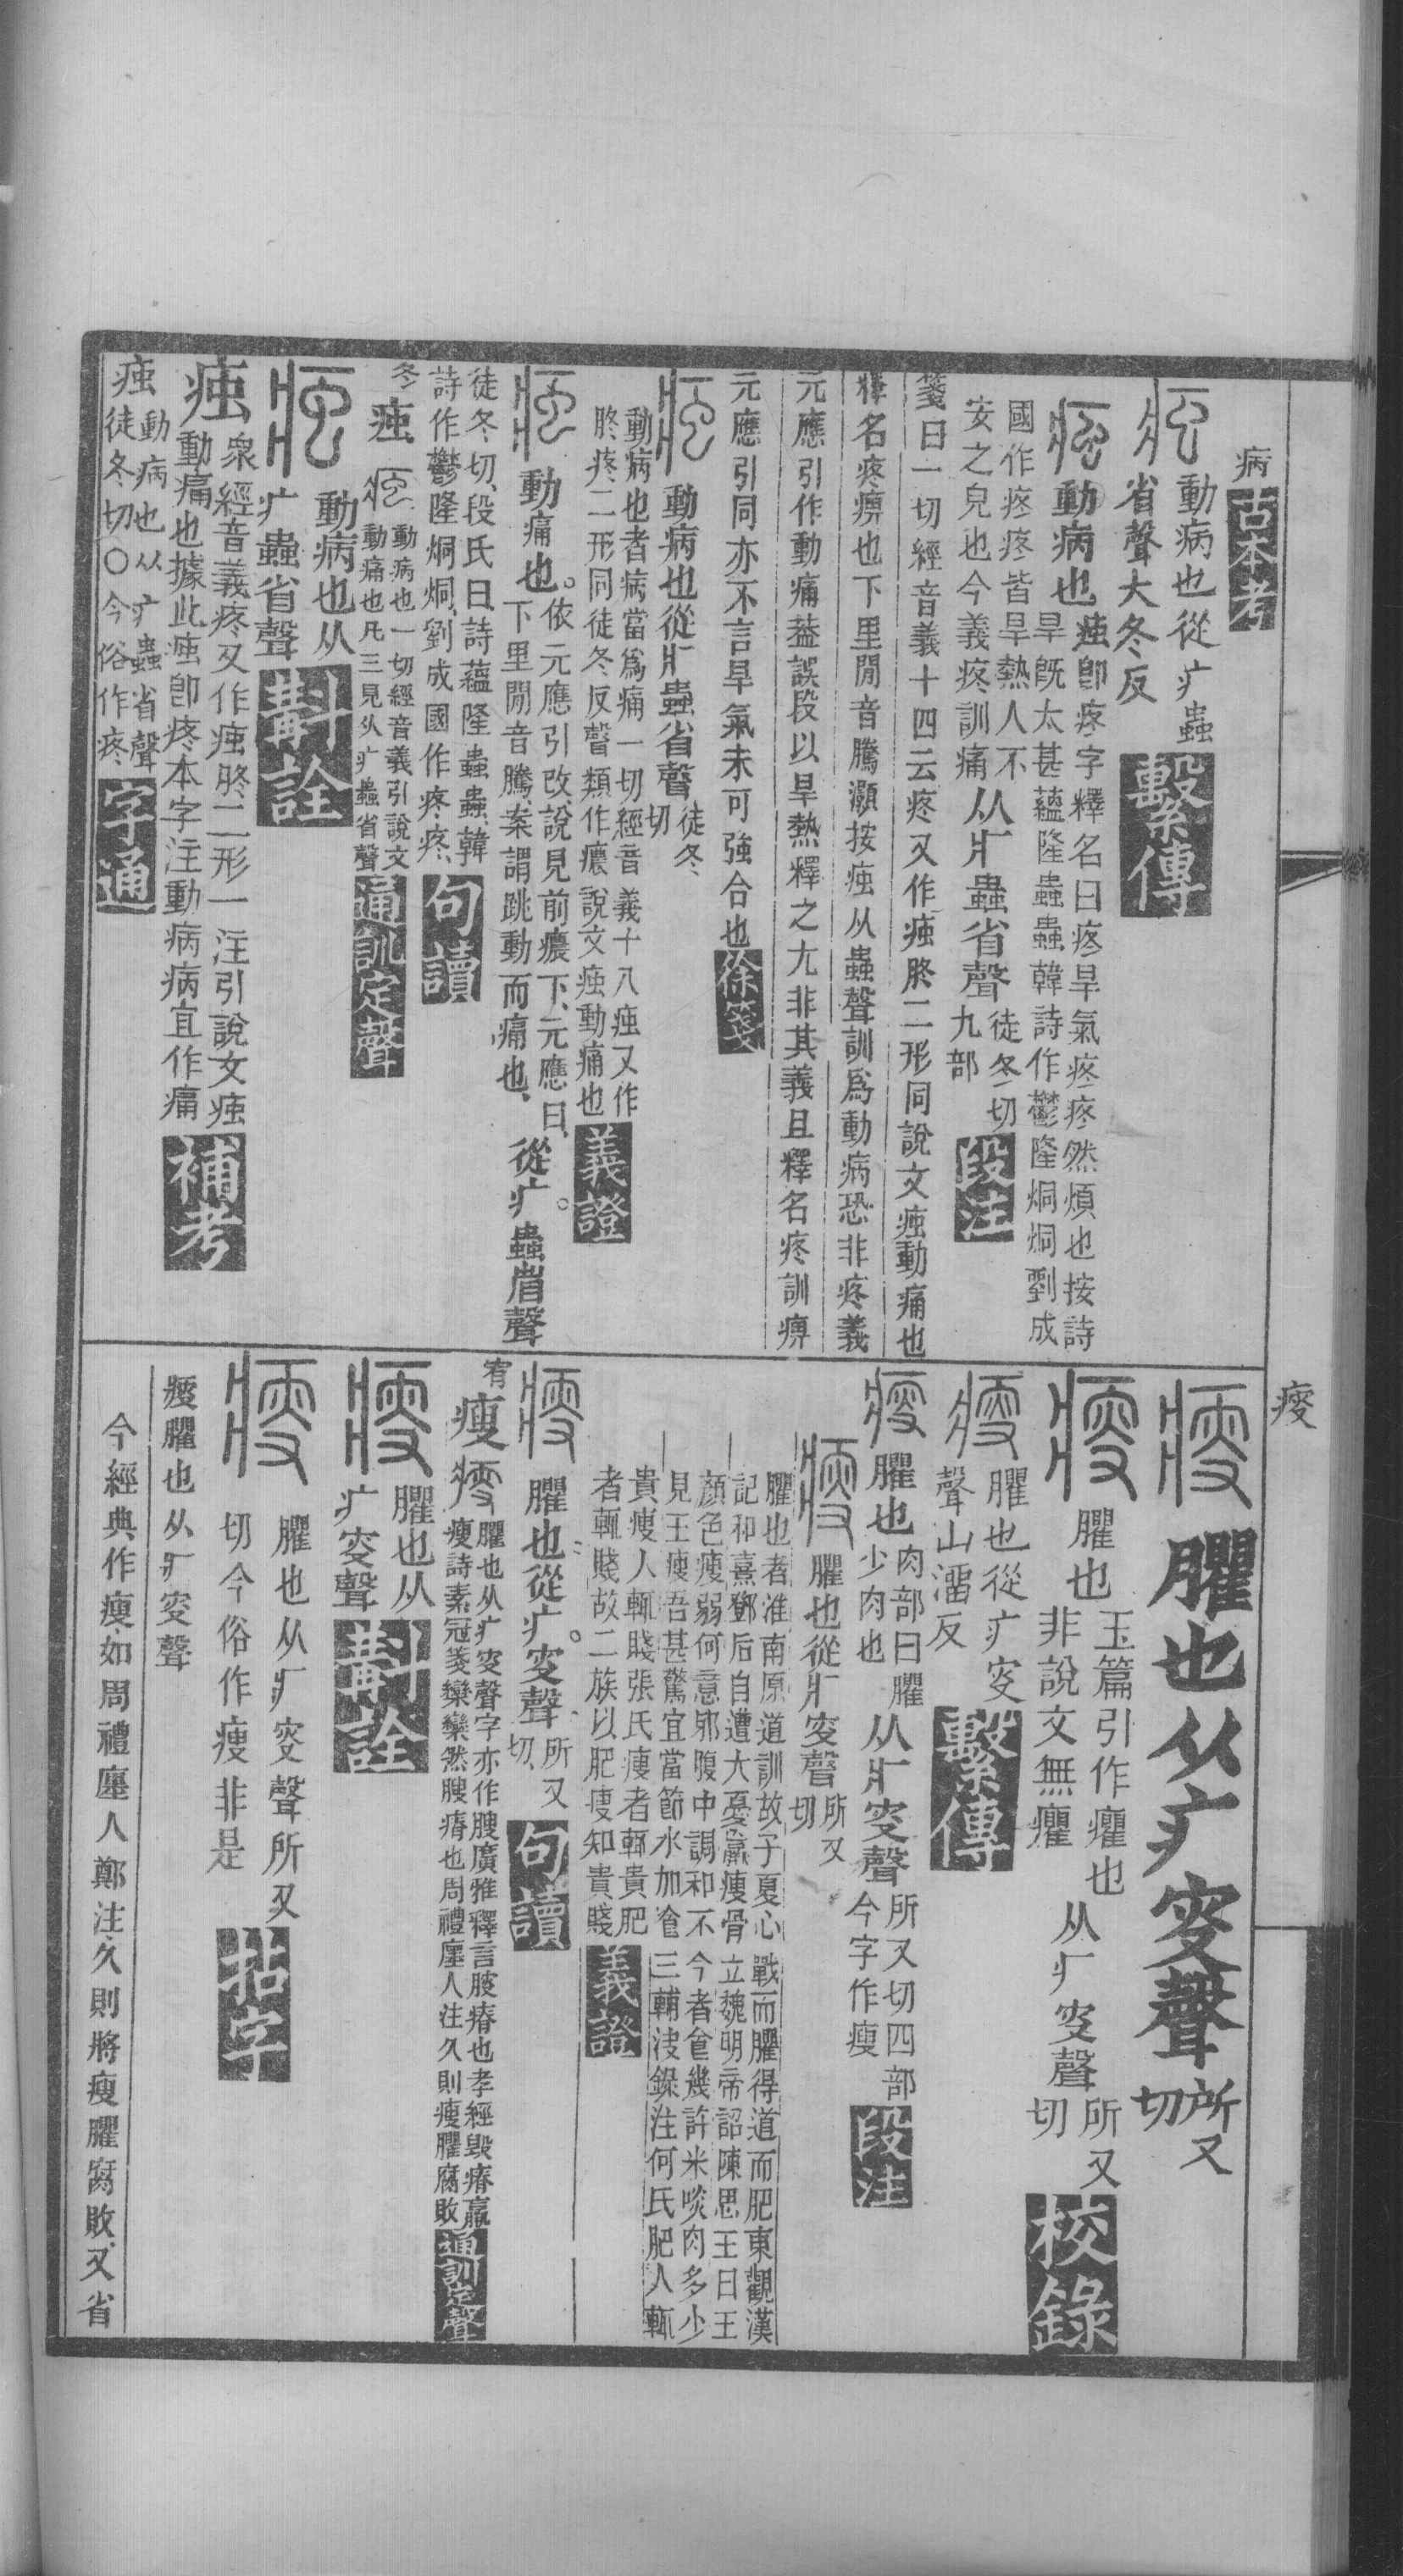 病 古本考
動病也從疒蟲
省聲大冬反 繫傳
動病也 疼卽疼字釋名曰疼旱氣疼疼然煩也按詩
旱旣太甚蘊隆蟲蟲韓詩作鬱隆烔烔劉成
國作疼疼皆旱熱人不
安之皃也今義疼訓痛 从疒蟲省聲 徒冬切
九部 段注
箋曰一切經音義十四云疼又作痋胗二形同說文痋動痛也
釋名疼痹也下里閒音騰灝按痋从蟲聲訓爲動病恐非疼義
元應引作動痛葢誤段以旱熱釋之尢非其義且釋名疼訓痹
元應引同亦不言旱氣未可強合也 徐箋
動病也從疒蟲省聲 徒冬
切
動病也者病當爲痛一切經音義十八痋又作
胗疼二形同徒冬反聲類作癑說文痋動痛也 義證
動痛也 依元應引改說見前癑下元應曰
下里閒音騰案謂跳動而痛也 從疒蟲省聲
徒冬切段氏曰詩蘊隆蟲蟲韓
詩作鬱隆烔烔劉成國作疼疼 句讀
冬 痋 動病也一切經音義引說文
動痛也凡三見从疒蟲省聲 通訓定聲
動病也从
疒蟲省聲 斠詮
痋 衆經音義疼又作痋胗二形一注引說文痋
動痛也據此痋卽疼本字注動病病宜作痛 補考
痋 動病也从疒蟲省聲
徒冬切〇今俗作疼 字通
瘦
臞也从疒叜聲 所又
切
臞也 玉篇引作癯也
非說文無癯 从疒叜聲 所又
切 校錄
臞也從疒叜
聲山溜反 繫傳
臞也 肉部曰臞
少肉也 从疒叜聲 所又切四部
今字作瘦 段注
臞也從疒叜聲 所又
切
臞也者淮南原道訓故子夏心戰而臞得道而肥東觀漢
記和熹鄧后自遭大憂羸瘦骨立魏明帝詔陳思王曰王
顏色瘦弱何意邪腹中調和不今者食幾許米啖肉多少
見王瘦吾甚驚宜當節水加飡三輔決錄注何氏肥人輒
貴瘦人輒賤張氏瘦者輒貴肥
者輒賤故二族以肥瘦知貴賤 義證
臞也從疒叜聲 所又
切 句讀
宥 瘦 臞也从疒叜聲字亦作膄廣雅釋言胑瘠也孝經毀瘠羸
瘦詩素冠箋欒欒然膄瘠也周禮廛人注久則瘦臞腐敗 通訓定聲
臞也从
疒叜聲 斠詮
臞也从疒叜聲所又
切今俗作瘦非是 拈字
瘦臞也从疒叜聲
今經典作瘦如周禮廛人鄭注久則將瘦臞腐敗又省